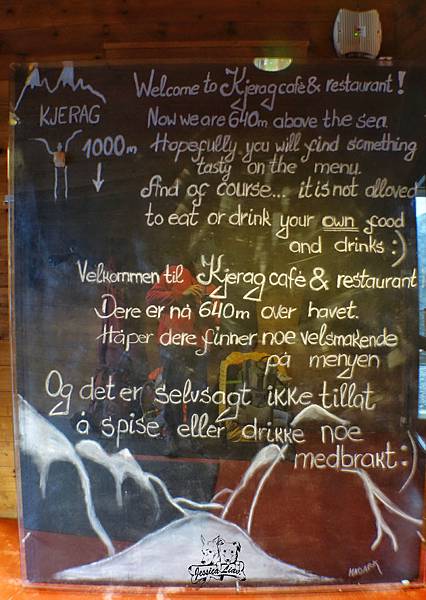 Welcome to Kjerag cafè & restaurant!
KJERAG
Now we are 640m above the sea
1000m
Hopefully you will find something
tasty on the menu.
And of course... it is not alloved
to eat or drink your own food
and drinks :)
Velkommen til Kjerag cafè & restaurant
Dere er nå 640m over havet.
Håper dere finner noe velsmakende
på menyen
Og det er selvsagt ikke tillat
å spise eller drikke noe
medbrakt :)
Jessica Ziau
MADARA